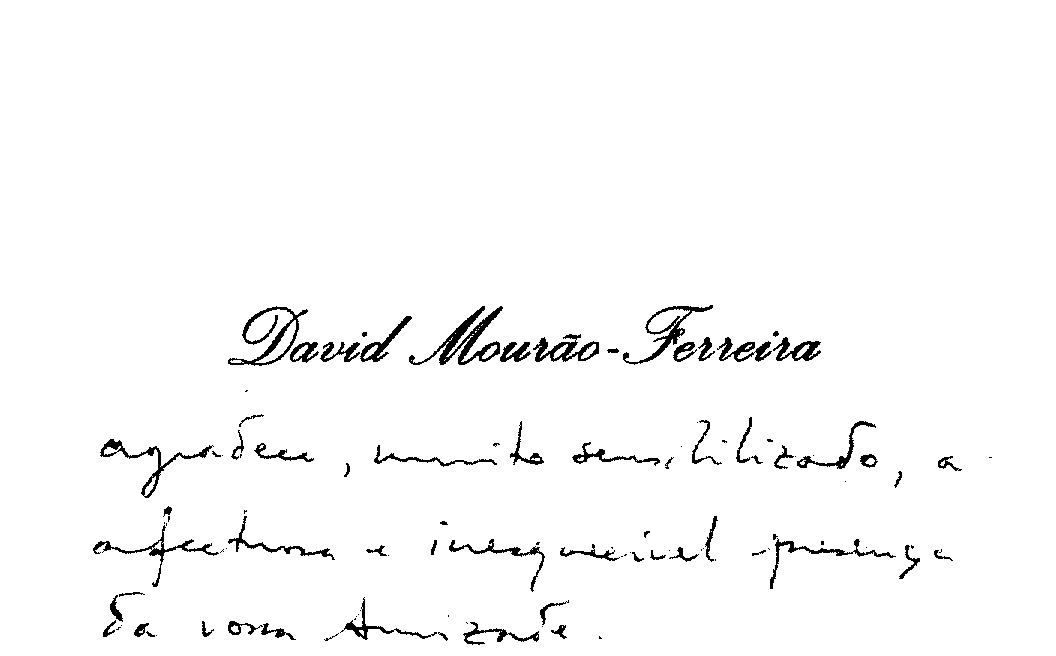 David Mourão-Ferreira
agradece, muito sensibilizado, a
afectuosa e inesquecível presença
da vossa Amizade.